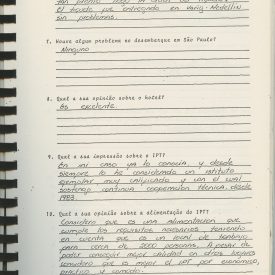 tan pronto llegó
El tiquete fue entregado en Varig-Medellín
sin problemas.
7. Houve algum problema no desembarque em São Paulo?
Ninguno
8. Qual a sua opinião sobre o hotel?
Es excelente.
9. Qual a sua impressão sobre o IPT?
En mi caso ya lo conocía, y desde
siempre lo he considerado un instituto
ejemplar, muy calificado y con el cual
sostengo continua cooperación técnica desde
1983.
10. Qual a sua opinião sobre a alimentação do IPT?
Considero que es una alimentación que
cumple los requisitos necesarios teniendo
en cuenta que es un local de trabajo
para cerca de 2000 personas. A pesar de
poder conseguir mejor calidad en otros lugares
considero que es mejor el IPT por económico,
práctico y cómodo.